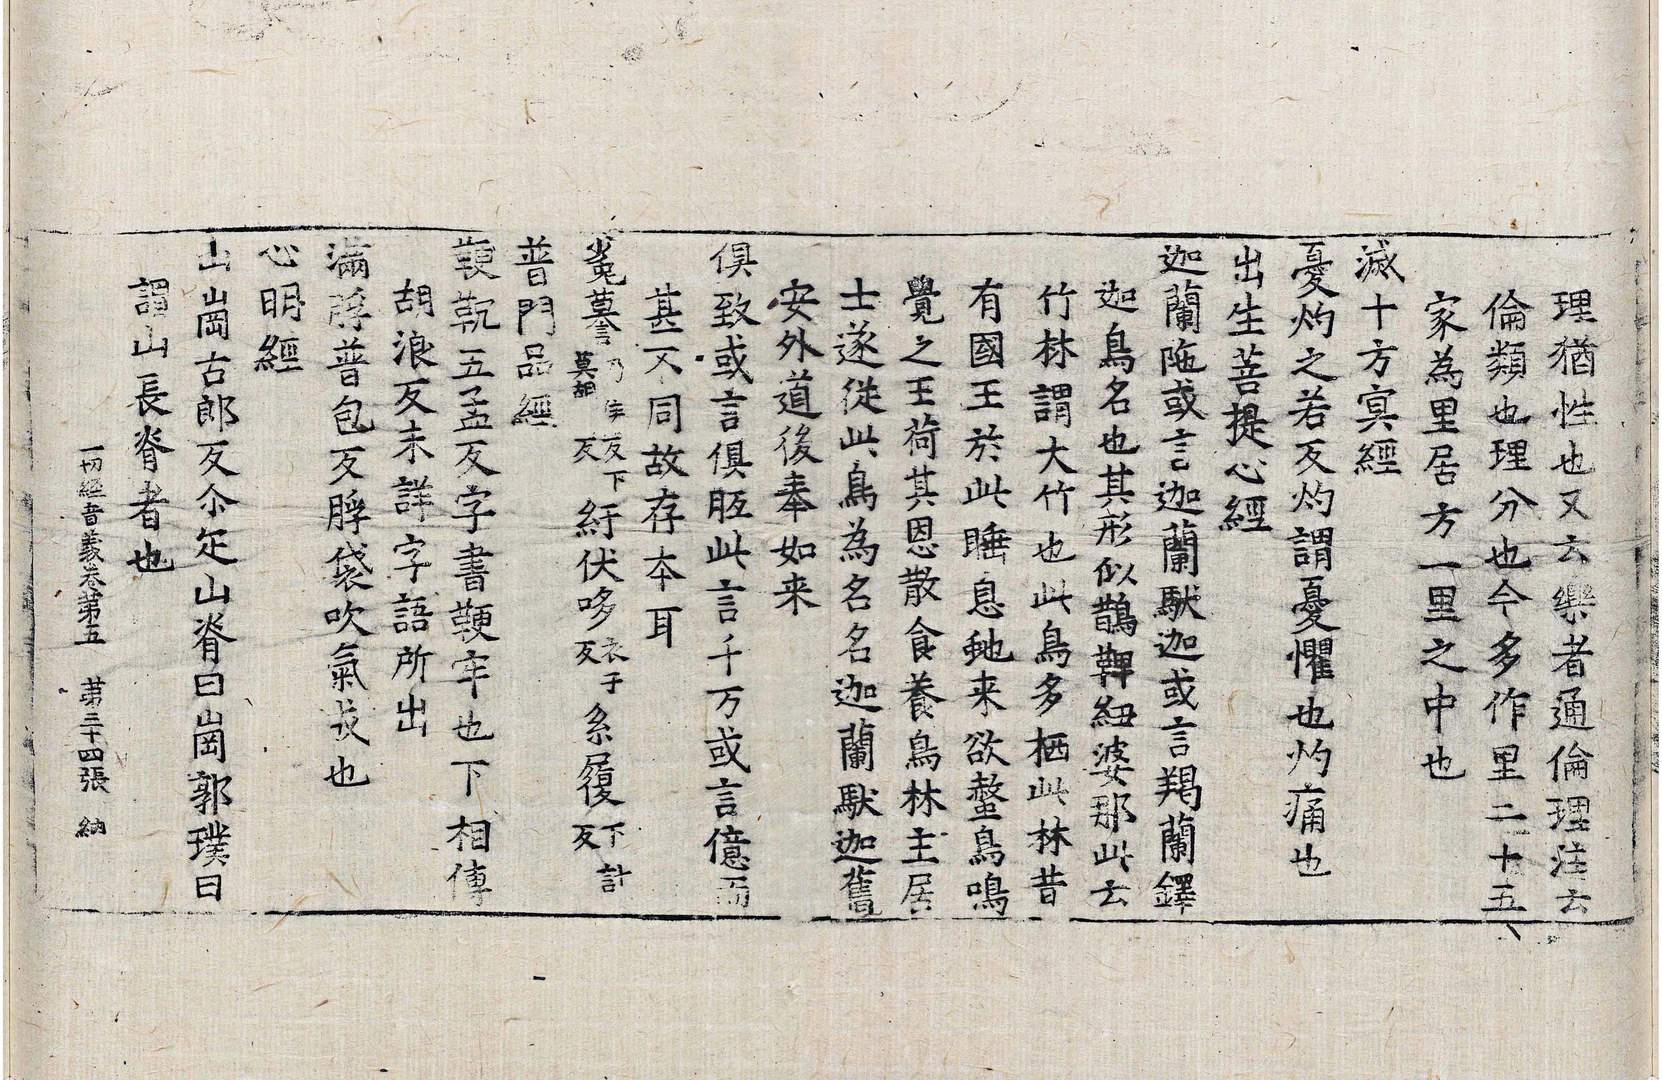 理猶性也又云樂者通倫理注云
倫類也理分也今多作里二十五
家為里居方一里之中也
滅十方冥經
憂灼之若反灼謂憂懼也灼痛也
出生菩提心經
迦蘭陁或言迦蘭馱迦或言羯蘭鐸
迦鳥名也其形似鵲鞞紐婆那此云
竹林謂大竹也此鳥多栖此林昔
有國王於此睡息虵来欲螫鳥鳴
覺之王荷其恩散食養鳥林主居
士遂従此鳥為名名迦蘭馱迦舊
安外道後奉如来
俱致或言俱胝此言千万或言億而
甚不同故存本耳
菟蟇 莫胡反 紆伏哆 衣于反 系履 下計反
普門品經
鞕䩕五孟反字書鞕牢也下相傳
胡浪反未詳字語所出
滿脬普包反脬袋吹氣皃也
心明經
山崗古郎反尒疋山脊曰崗郭璞曰
謂山長脊者也
一切經音義卷第五 第三十四張 納